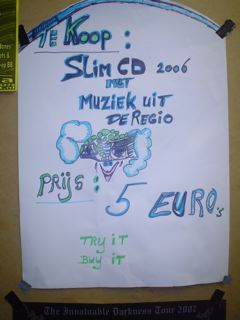 Te Koop :
SLim CD 2006
MET
MUZiEK UiT
DE REGiO
PRijs : 5 EURO's
TRY iT
BUY iT
The Insatiable Darkness Tour 2007